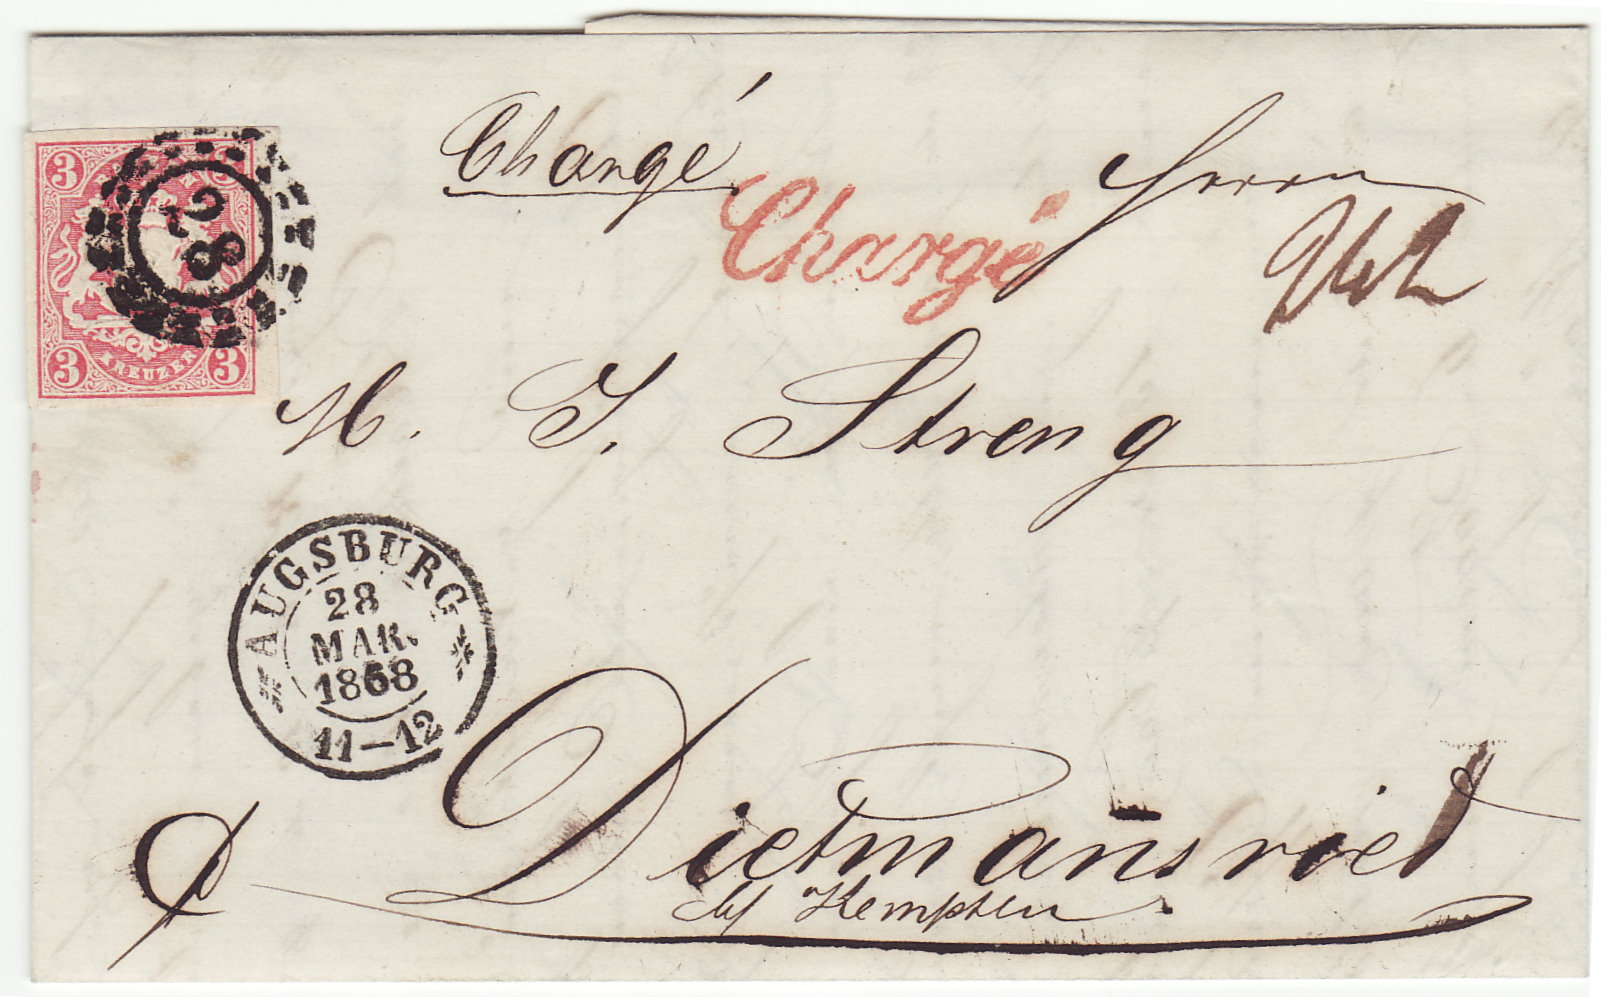 Chargé
Chargé
Herrn
3 3
28
KREUZER
3 3
M. J. Streng
AUGSBURG
28
MAR.
1868
11-12
Dietmansried
Kempten